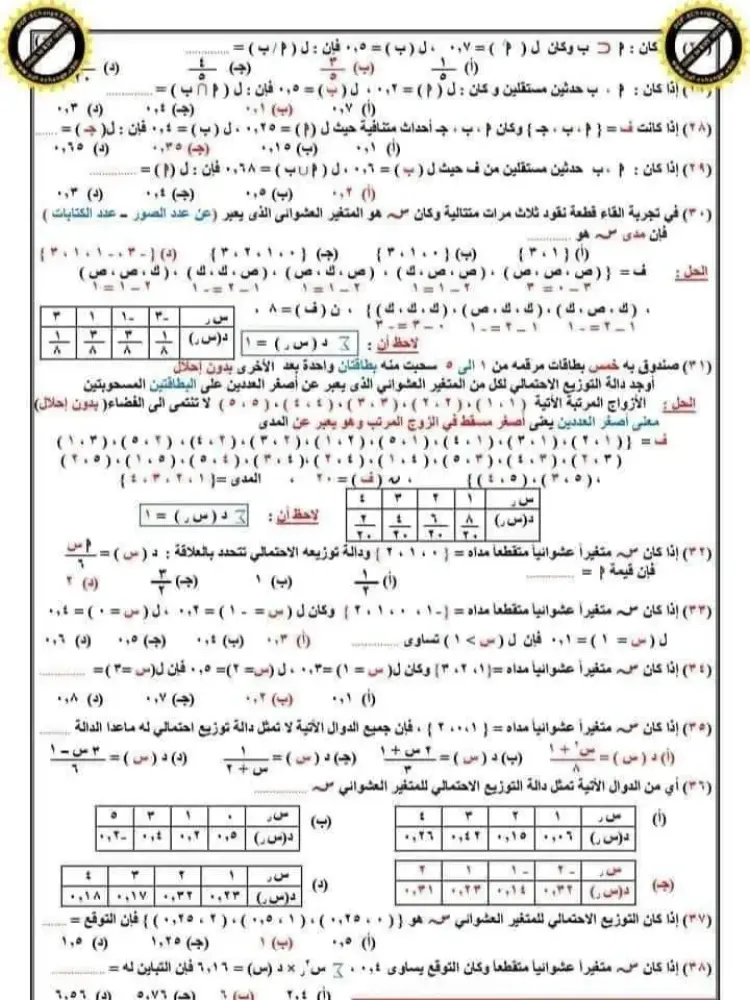 كان : ا ⊂ ب وكان ل ( ا ) = ٠,٧ ، ل ( ب ) = ٠,٥ فإن : ل ( ا / ب ) = ............
(أ) ١/٥ (ب) ٣/٥ (جـ) ٤/٥ (د)
إذا كان : ا ، ب حدثين مستقلين و كان : ل ( ا ) = ٠,٢ ، ل ( ب ) = ٠,٥ فإن : ل ( ا ∩ ب ) = ............
(أ) ٠,٧ (ب) ٠,١ (جـ) ٠,٤ (د) ٠,٣
(٢٨) إذا كانت ف = { ا ، ب ، جـ } وكان ا ، ب ، جـ أحداث متنافية حيث ل ( ا ) = ٠,٢٥ ، ل ( ب ) = ٠,٤ فإن : ل( جـ ) = ......
(أ) ٠,١ (ب) ٠,١٥ (جـ) ٠,٣٥ (د) ٠,٦٥
(٢٩) إذا كان : ا ، ب حدثين مستقلين من ف حيث ل ( ب ) = ٠,٦ ، ل ( ا ∪ ب ) = ٠,٦٨ فإن : ل ( ا ) = ............
(أ) ٠,٢ (ب) ٠,٥ (جـ) ٠,٤ (د) ٠,٣
(٣٠) في تجربة القاء قطعة نقود ثلاث مرات متتالية وكان سہ هو المتغير العشوائى الذى يعبر (عن عدد الصور – عدد الكتابات )
فإن مدى سہ هو ............
(أ) { ١ ، ٣ } (ب) { ٠ ، ١ ، ٣ } (جـ) { ٠ ، ١ ، ٢ ، ٣ } (د) { -٣ ، -١ ، ١ ، ٣ }
الحل : ف = { (ص ، ص ، ص) ، (ص ، ص ، ك) ، (ص ، ك ، ص) ، (ص ، ك ، ك) ، (ك ، ص ، ص)
٣ – ٠ = ٣ ٢ – ١ = ١ ٢ – ١ = ١ ١ – ٢ = -١ ٢ – ١ = ١
، (ك ، ص ، ك) ، (ك ، ك ، ص) ، (ك ، ك ، ك) } ، ن ( ف ) = ٨ ،
١ – ٢ = -١ ١ – ٢ = -١ ٠ – ٣ = -٣
س ر -٣ -١ ١ ٣
د(س ر) ١/٨ ٣/٨ ٣/٨ ١/٨
لاحظ أن : ∑ د ( س ر ) = ١
(٣١) صندوق به خمس بطاقات مرقمه من ١ الى ٥ سحبت منه بطاقتان واحدة بعد الأخرى بدون إحلال
أوجد دالة التوزيع الاحتمالي لكل من المتغير العشوائي الذى يعبر عن أصغر العددين على البطاقتين المسحوبتين
الحل : الأزواج المرتبة الأتية ( ١ ، ١ ) ، ( ٢ ، ٢ ) ، ( ٣ ، ٣ ) ، ( ٤ ، ٤ ) ، ( ٥ ، ٥ ) لا تنتمى الى الفضاء( بدون إحلال)
معنى أصغر العددين يعنى أصغر مسقط في الزوج المرتب وهو يعبر عن المدى
س ر ١ ٢ ٣ ٤
د(س ر) ٨/٢٠ ٦/٢٠ ٤/٢٠ ٢/٢٠
لاحظ أن : ∑ د ( س ر ) = ١
(٣٢) إذا كان سہ متغيراً عشوائياً متقطعاً مداه = { ٠ ، ١ ، ٢ } ودالة توزيعه الاحتمالي تتحدد بالعلاقة : د ( س ) = ا س/٦
فإن قيمة ا = ............
(أ) ١/٢ (ب) ١ (جـ) ٣/٢ (د) ٢
(٣٣) إذا كان سہ متغيراً عشوائياً متقطعاً مداه = { -١ ، ٠ ، ١ ، ٢ } وكان ل ( س = -١ ) = ٠,٢ ، ل ( س = ٠ ) = ٠,٤
ل ( س = ١ ) = ٠,١ فإن ل ( س > ١ ) تساوى ............ (أ) ٠,٣ (ب) ٠,٤ (جـ) ٠,٥ (د) ٠,٦
(٣٤) إذا كان سہ متغيراً عشوائياً متقطعاً مداه = {١ ، ٢ ، ٣ } وكان ل( س = ١) = ٠,٣ ، ل (س = ٢) = ٠,٥ فإن ل(س = ٣) = ............
(أ) ٠,١ (ب) ٠,٢ (جـ) ٠,٧ (د) ٠,٨
(٣٥) إذا كان سہ متغيراً عشوائياً مداه = { ١ ، ٠ ، ٢ } ، فإن جميع الدوال الأتية لا تمثل دالة توزيع احتمالي له ماعدا الدالة ............
(أ) د ( س ) = س٢ + ١/٨ (ب) د ( س ) = ٢ س + ١/٣ (جـ) د ( س ) = ١/س + ٢ (د) د ( س ) = ٣ س – ١/٦
(٣٦) أي من الدوال الأتية تمثل دالة التوزيع الاحتمالي للمتغير العشوائي سہ ............
(أ) س ر ١ ٢ ٣ ٤ (ب) س ر ٠ ١ ٣ ٥
د(س ر) ٠,٠٦ ٠,١٥ ٠,٤٢ ٠,٢٦ د(س ر) ٠,٥ ٠,٢ ٠,٤ -٠,٢
(جـ) س ر -٢ -١ ١ ٢ (د) س ر ١ ٢ ٣ ٤
د(س ر) ٠,٣٢ ٠,١٤ ٠,٢٣ ٠,٣١ د(س ر) ٠,٢٣ ٠,٣٢ ٠,١٧ ٠,١٨
(٣٧) إذا كان التوزيع الاحتمالي للمتغير العشوائي سہ هو { ( ٠ ، ٠,٢٥ ) ، ( ١ ، ٠,٥ ) ، ( ٢ ، ٠,٢٥ ) } فإن التوقع = ......
(أ) ٠,٥ (ب) ١ (جـ) ١,٢٥ (د) ١,٥
(٣٨) إذا كان سہ متغيراً عشوائياً متقطعاً وكان التوقع يساوى ٠,٤ ، ∑ س٢ر × د (س) = ٦,١٦ فإن التباين له = ............
(أ) ٢,٤ (ب) ٦ (جـ) ٥,٧٦ (د) ٦,٥٦